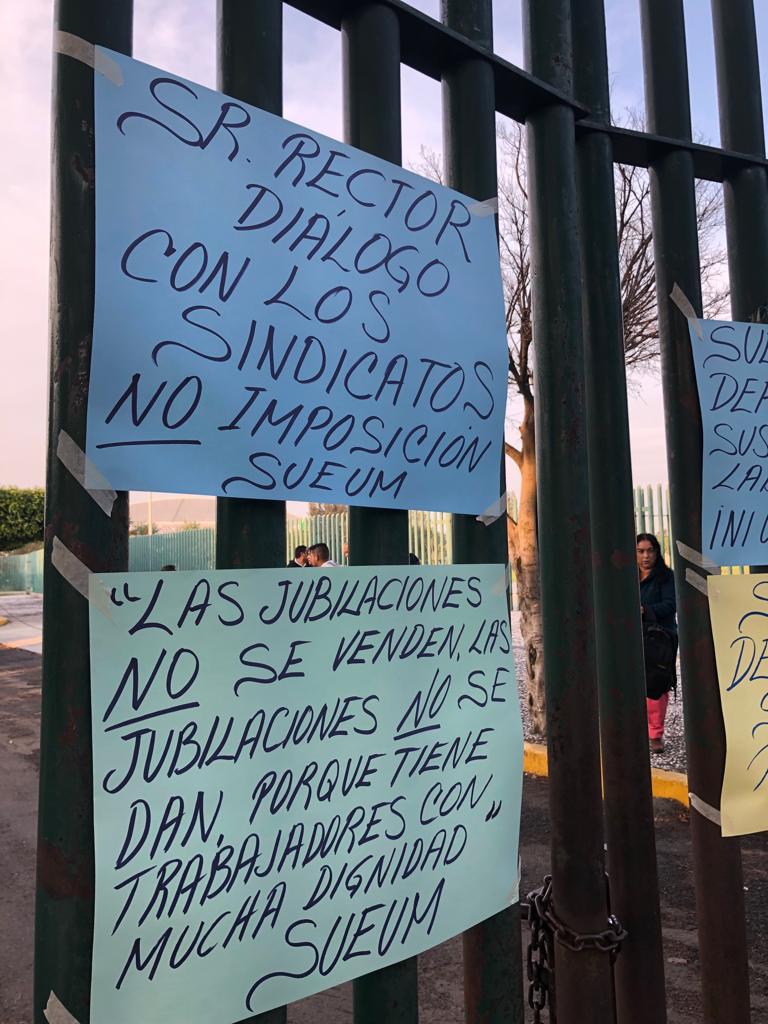 SR. RECTOR
DIÁLOGO
CON LOS
SINDICATOS
NO IMPOSICIÓN
SUEUM
"LAS JUBILACIONES
NO SE VENDEN, LAS
JUBILACIONES NO SE
DAN, PORQUE TIENE
TRABAJADORES CON
MUCHA DIGNIDAD"
SUEUM